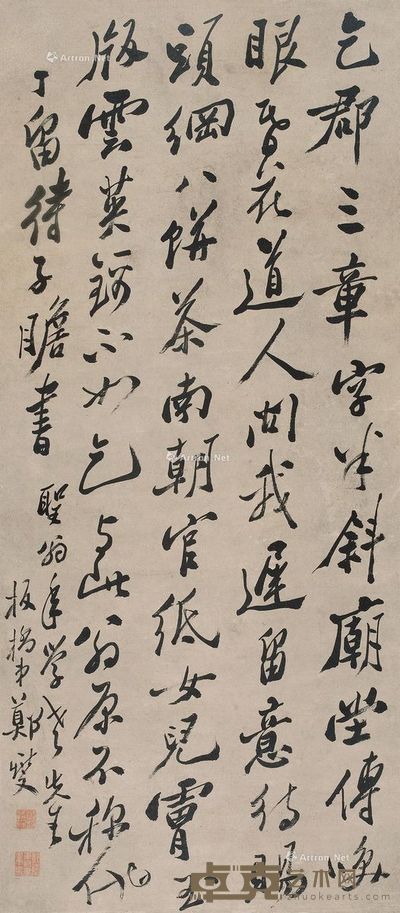 乞郡三章字半斜廟堂傳咲
眼昏花道人問我遲留意待賜
頭綱八餅茶南朝官紙女兒膚玉
版雲英不如乞与此翁原不稱他
留待子瞻書 聖翁年學老先生
板橋弟鄭燮
Artron.Net
Artron.Net
Artron.Net
Artron.Net
卓克艺术网